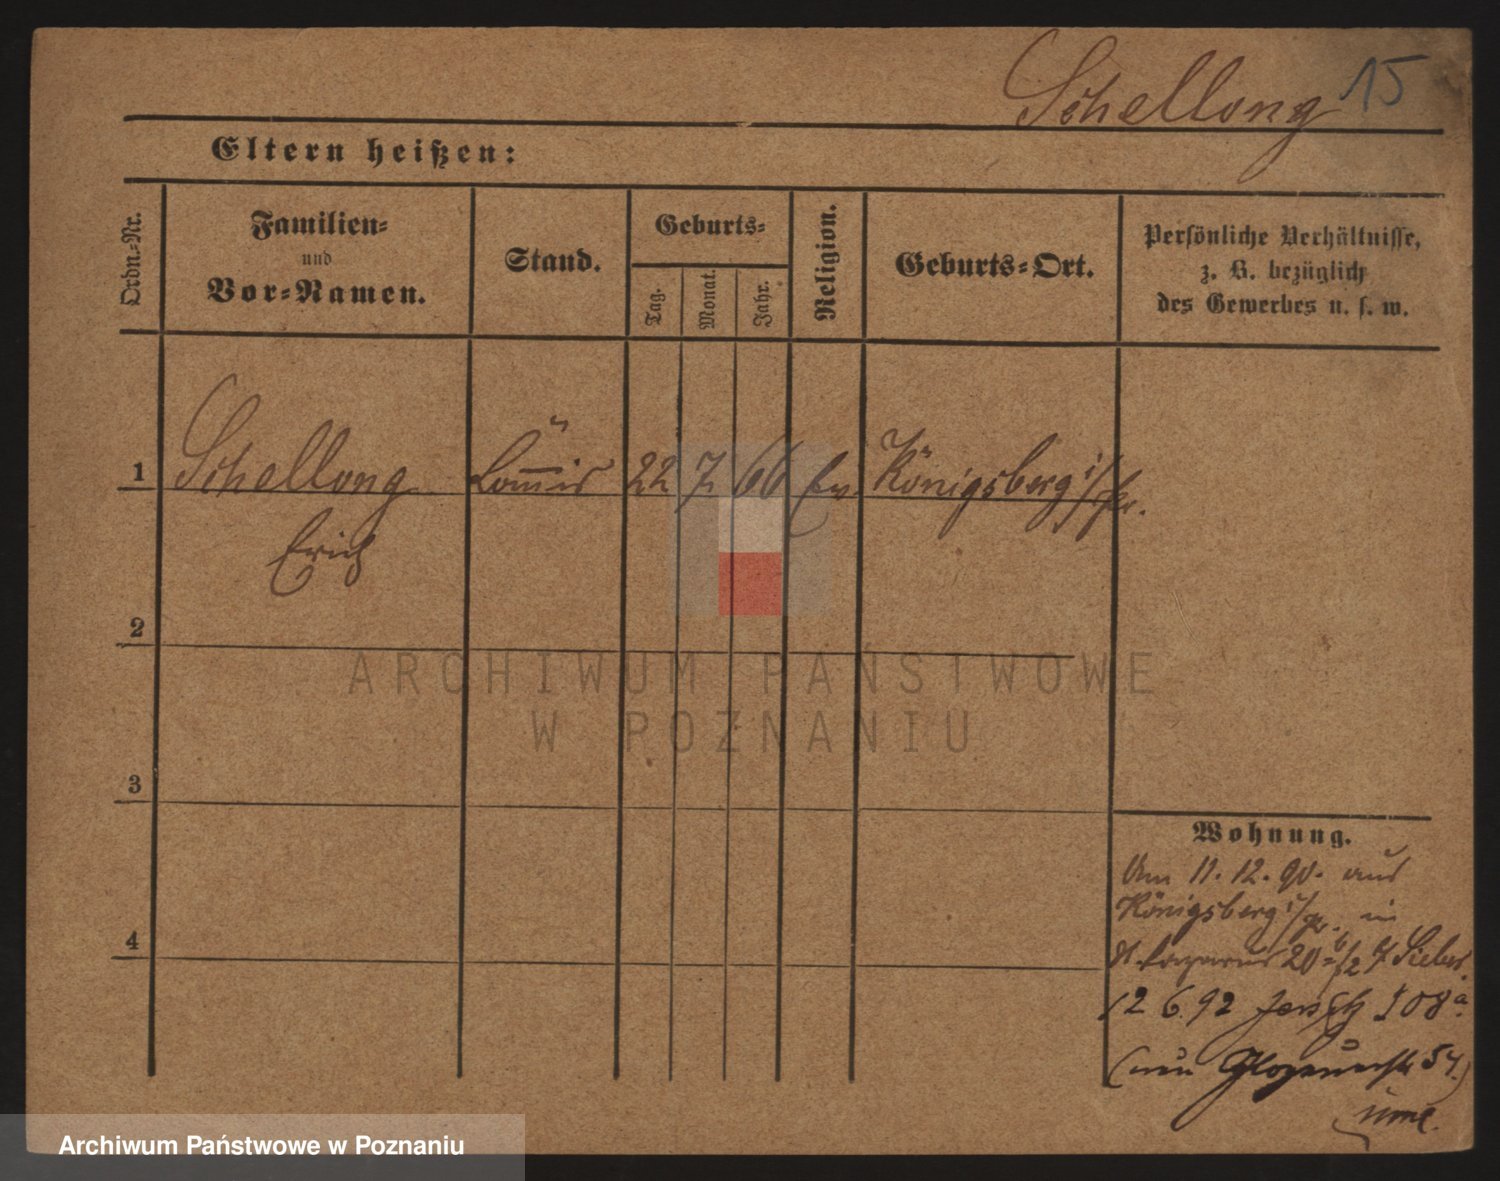 Schellong 15
Eltern heißen:
Ordn.-Nr.
Familien-
und
Vor-Namen.
Stand.
Geburts-
Tag.
Monat.
Jahr.
Religion.
Geburts-Ort.
Persönliche Verhältnisse,
z. B. bezüglich
des Gewerbes u. s. w.
1 Schellong 22 7 66 Ev Königsberg i/Pr.
Erich
2
ARCHIWUM PAŃSTWOWE
W POZNANIU
3
Wohnung.
Am 11. 12. 90. aus
Königsberg i/Pr. in
4
St. Lazarus 20 b/2
12 6. 92 Jersitz 108a.
(neu Glogauerstr 54.)
Archiwum Państwowe w Poznaniu